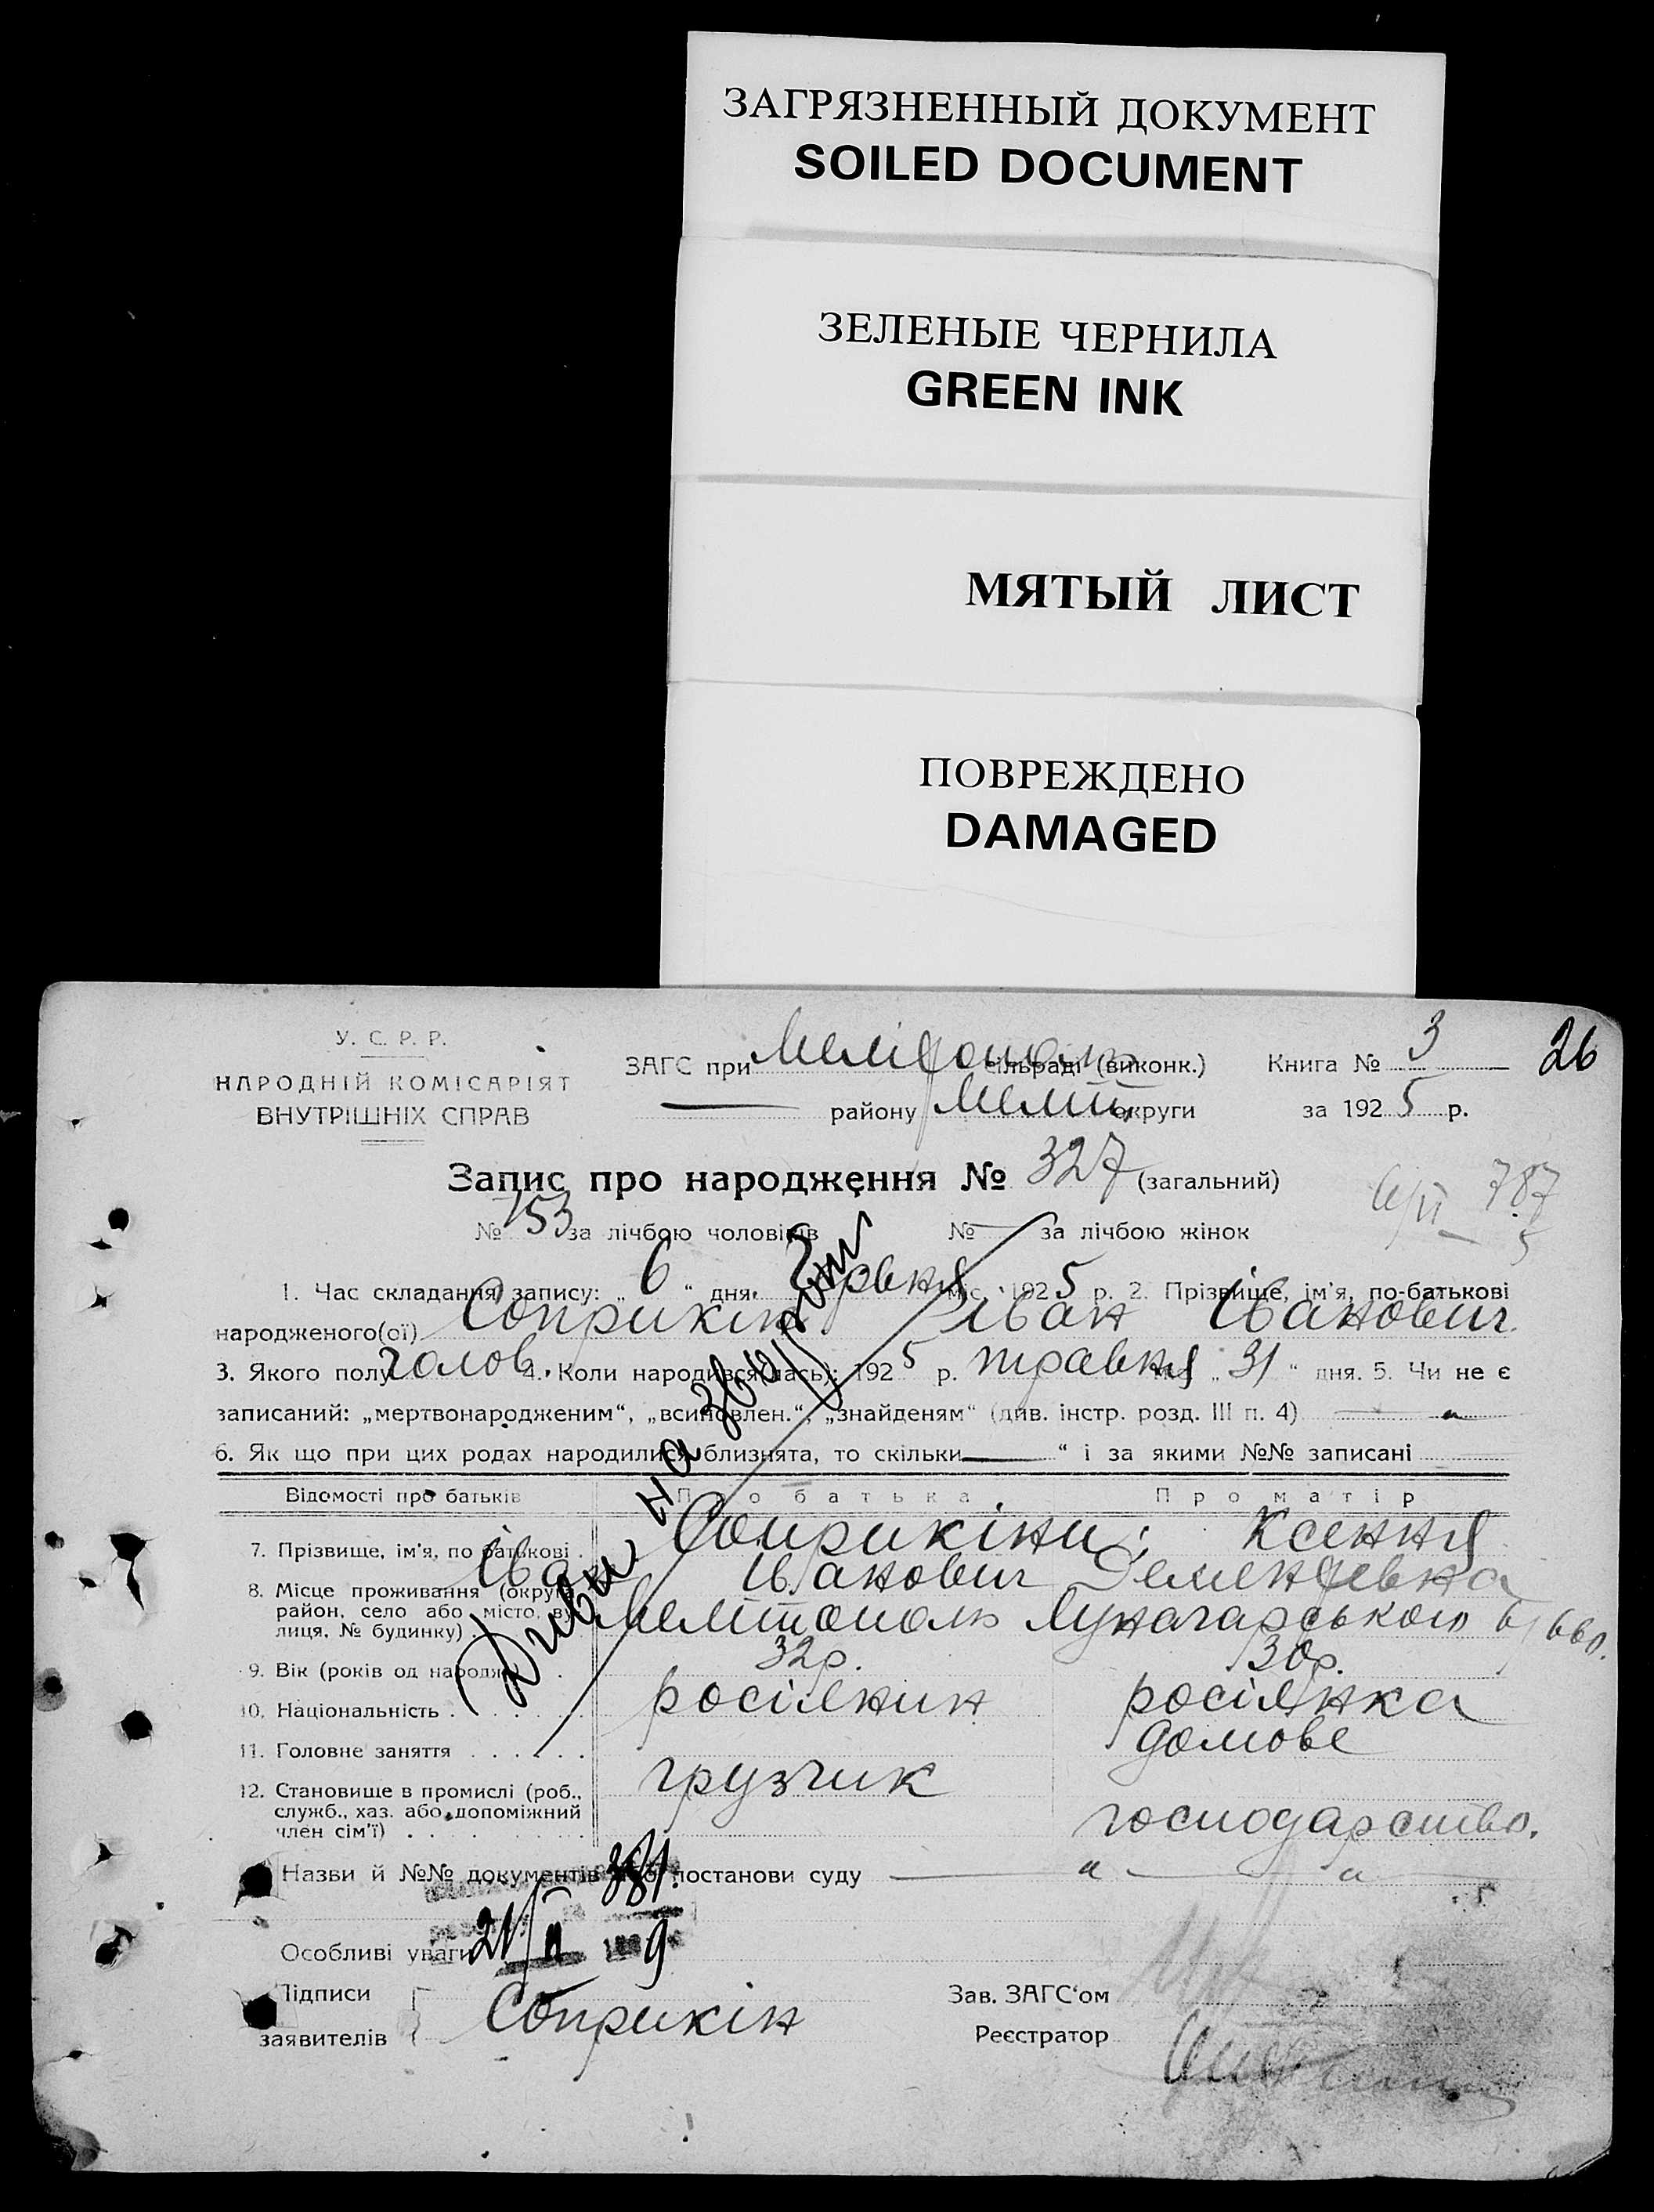 ЗАГРЯЗНЕННЫЙ ДОКУМЕНТ
SOILED DOCUMENT
ЗЕЛЕНЫЕ ЧЕРНИЛА
GREEN INK
МЯТЫЙ ЛИСТ
ПОВРЕЖДЕНО
DAMAGED
У. С. Р. Р.
НАРОДНІЙ КОМІСАРІЯТ
ВНУТРІШНІХ СПРАВ
ЗАГС при Мелітополь сільраді (виконк.) Книга № 3 26
— району Меліт. округи за 1925 р.
Запис про народження № 327 (загальний)
787
№ 153 за лічбою чоловіків № — за лічбою жінок
1. Час складання запису: „ 6 “ дня міс. 1925 р. 2. Прізвище, ім'я, по-батькові
народженого(ої) Соприкін Іван Іванович
3. Якого полу чолов. 4. Коли народився(лась): 1925 р. травня міс. „ 31 “ дня. 5. Чи не є
записаний: „мертвонародженим“, „всиновлен.“, „знайденям“ (див. інстр. розд. III п. 4) — „
6. Як що при цих родах народилися близнята, то скільки — “ і за якими №№ записані
Відомості про батьків Про батька Про матір
7. Прізвище, ім'я, по батькові Соприкіни: Ксенія
Іва Іванович Дементівна
8. Місце проживання (округа, район, село або місто, вулиця, № будинку) Мелітополь Луначарського
9. Вік (років од народж.) 32р. 30р.
10. Національність росіянин росіянка
11. Головне заняття грузчик домове
12. Становище в промислі (роб., служб., хаз. або допоміжний член сім'ї) господарство.
Диви на звороті
Назви й №№ документів або постанови суду — „ — „
381.
Особливі уваги 21/II 9
Підписи
заявителів Соприкін
Зав. ЗАГС'ом
Реєстратор